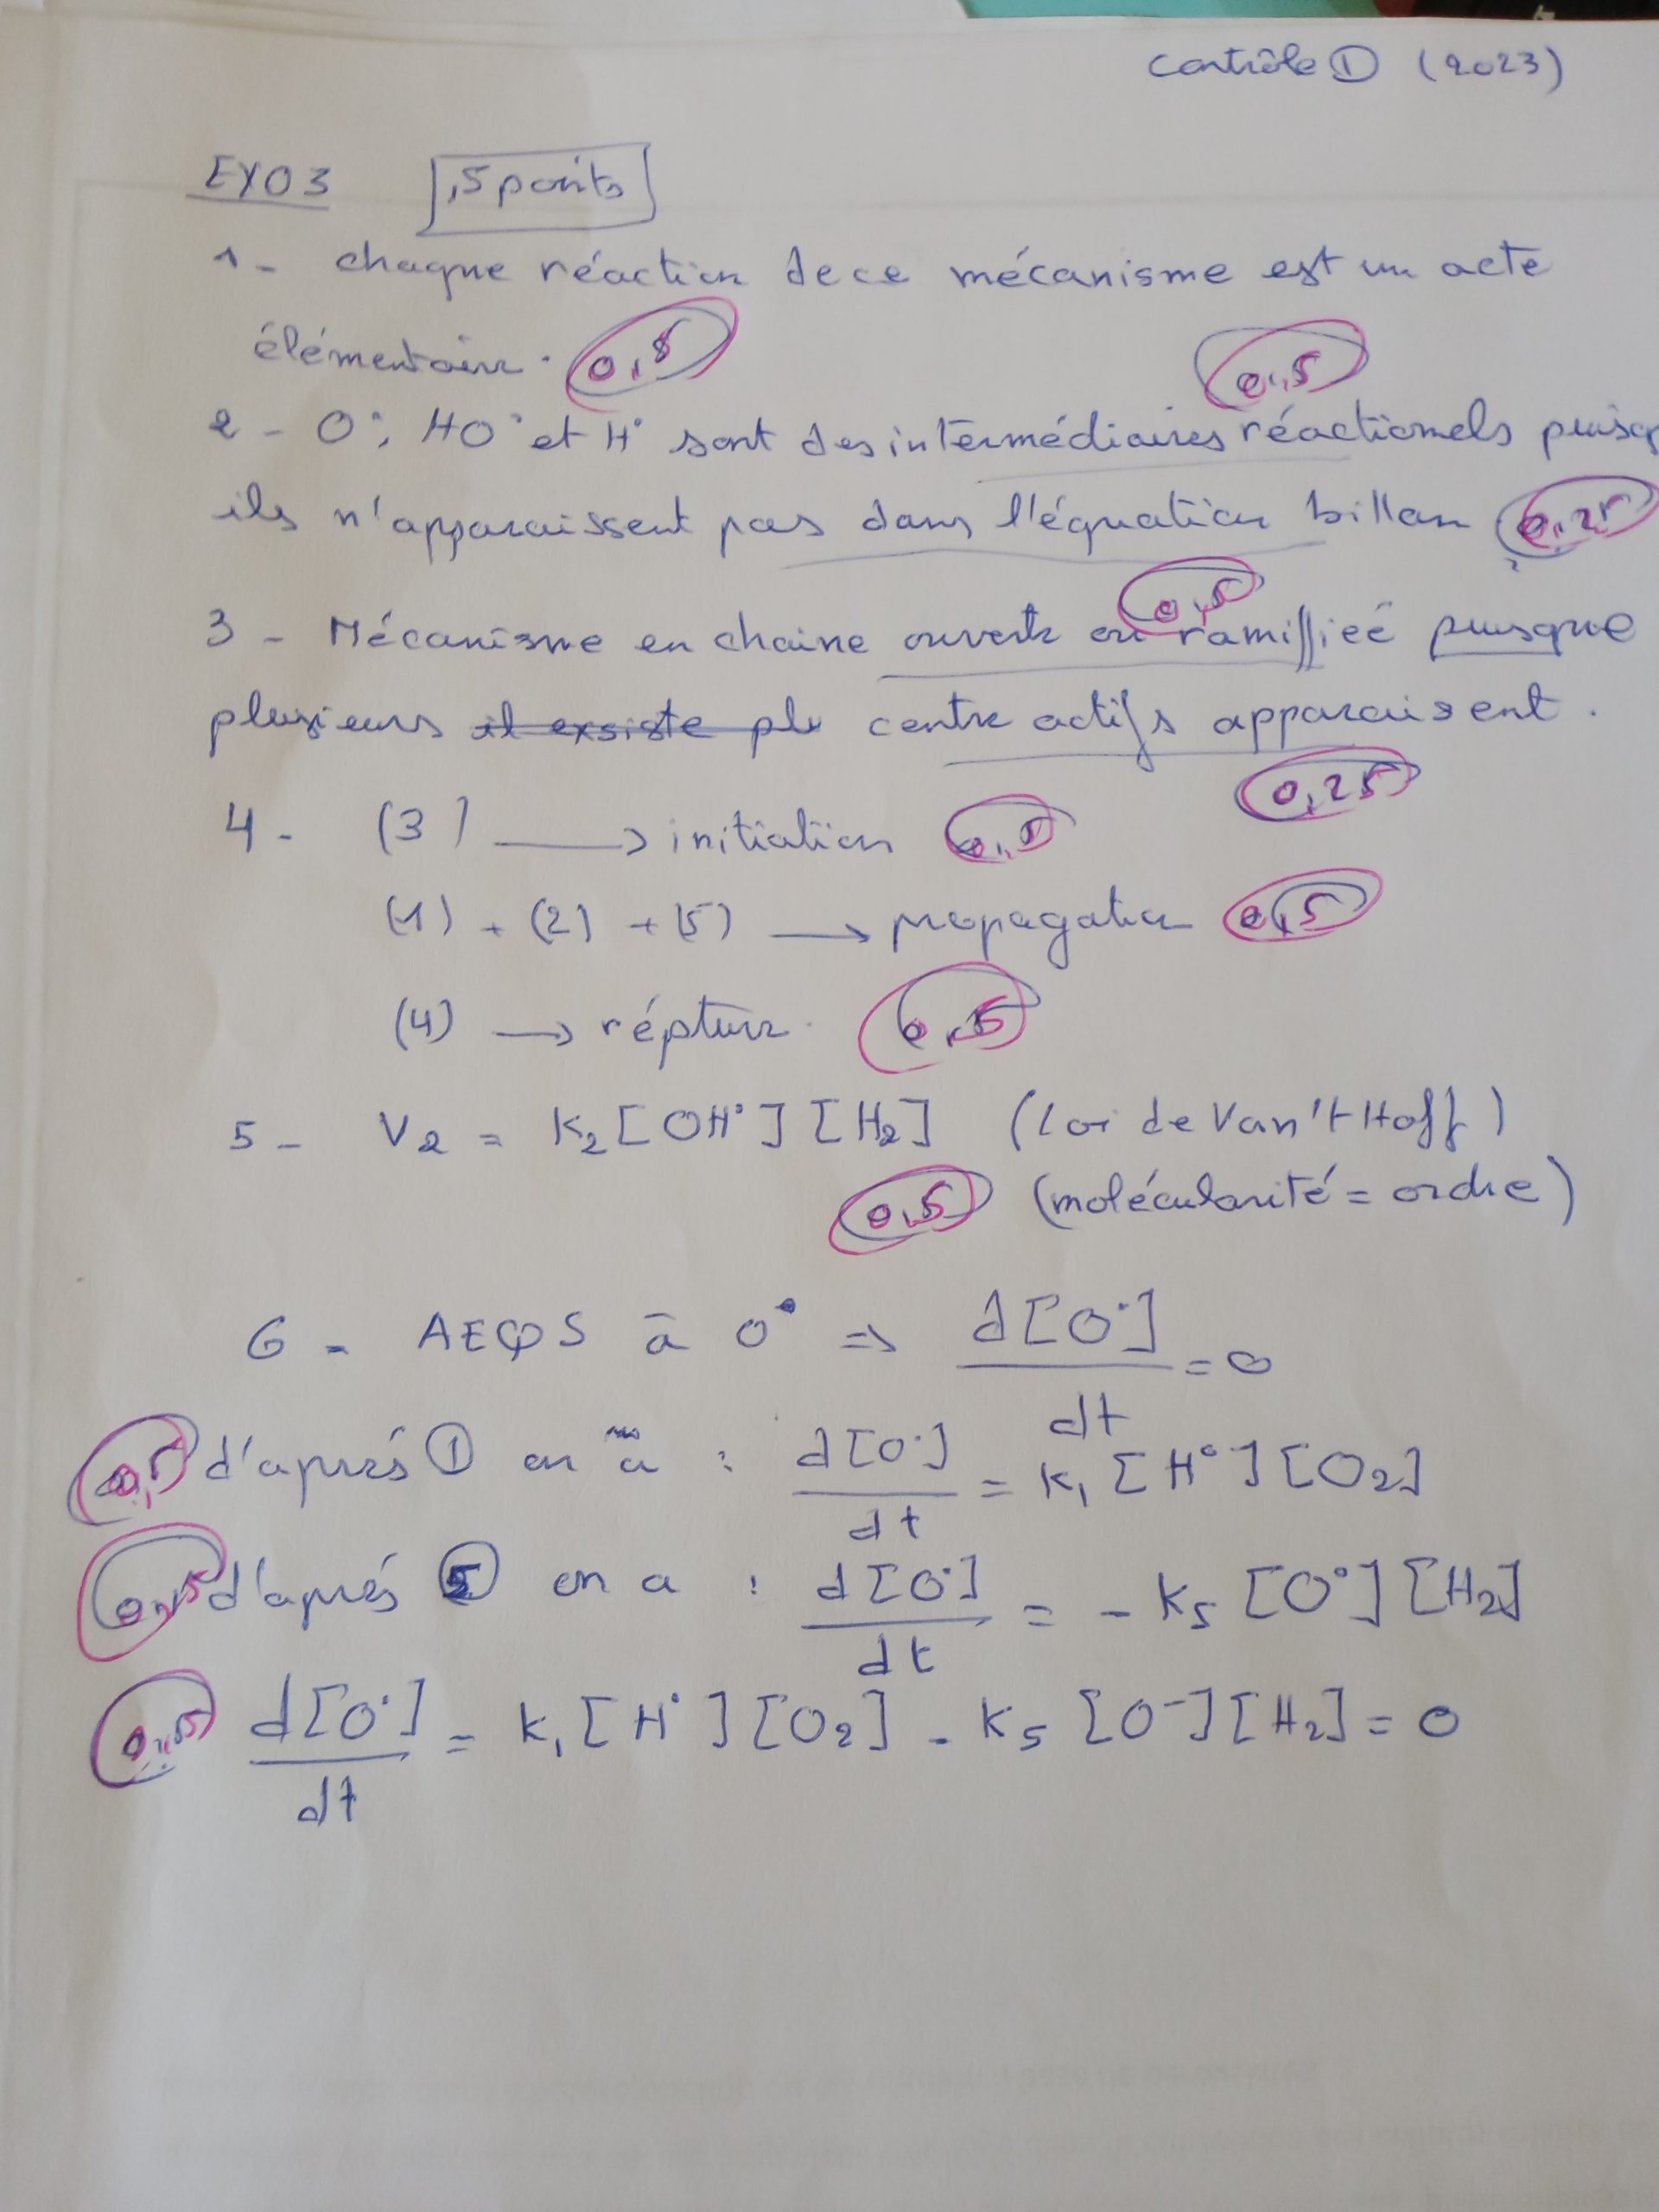 contrôle ① (2023)
EXO3 ,5 points
1 - chaque réaction de ce mécanisme est un acte
élémentaire. 0,5
0,5
2 - O°, HO° et H° sont des intermédiaires réactionels puisq
ils n'apparaissent pas dans l'équation billan 0,25
0,5
3 - Mécanisme en chaine ouverte ou ramifieé puisque
plusieurs il exsiste plu centre actifs apparaissent.
0,25
4 - (3) → initiation 0,5
(1) + (2) + (5) → propagation 0,5
(4) → répture. 0,5
5 - V2 = K2 [OH°] [H2] (Loi de Van't Hoff)
0,5 (molécularité = ordre)
6 - AEQS à O° => d[O°]/dt = 0
0,5 d'aprés ① on a : d[O°]/dt = K1 [H°] [O2]
0,5 d'aprés ⑤ on a : d[O°]/dt = - K5 [O°] [H2]
0,5 d[O°]/dt = K1 [H°] [O2] - K5 [O-] [H2] = 0